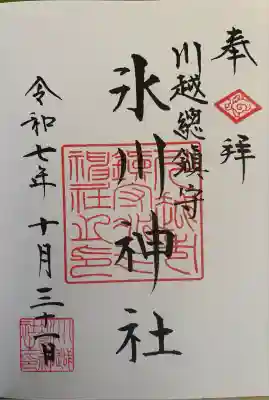 奉拝
川越総鎮守
氷川神社
令和七年十月三十一日